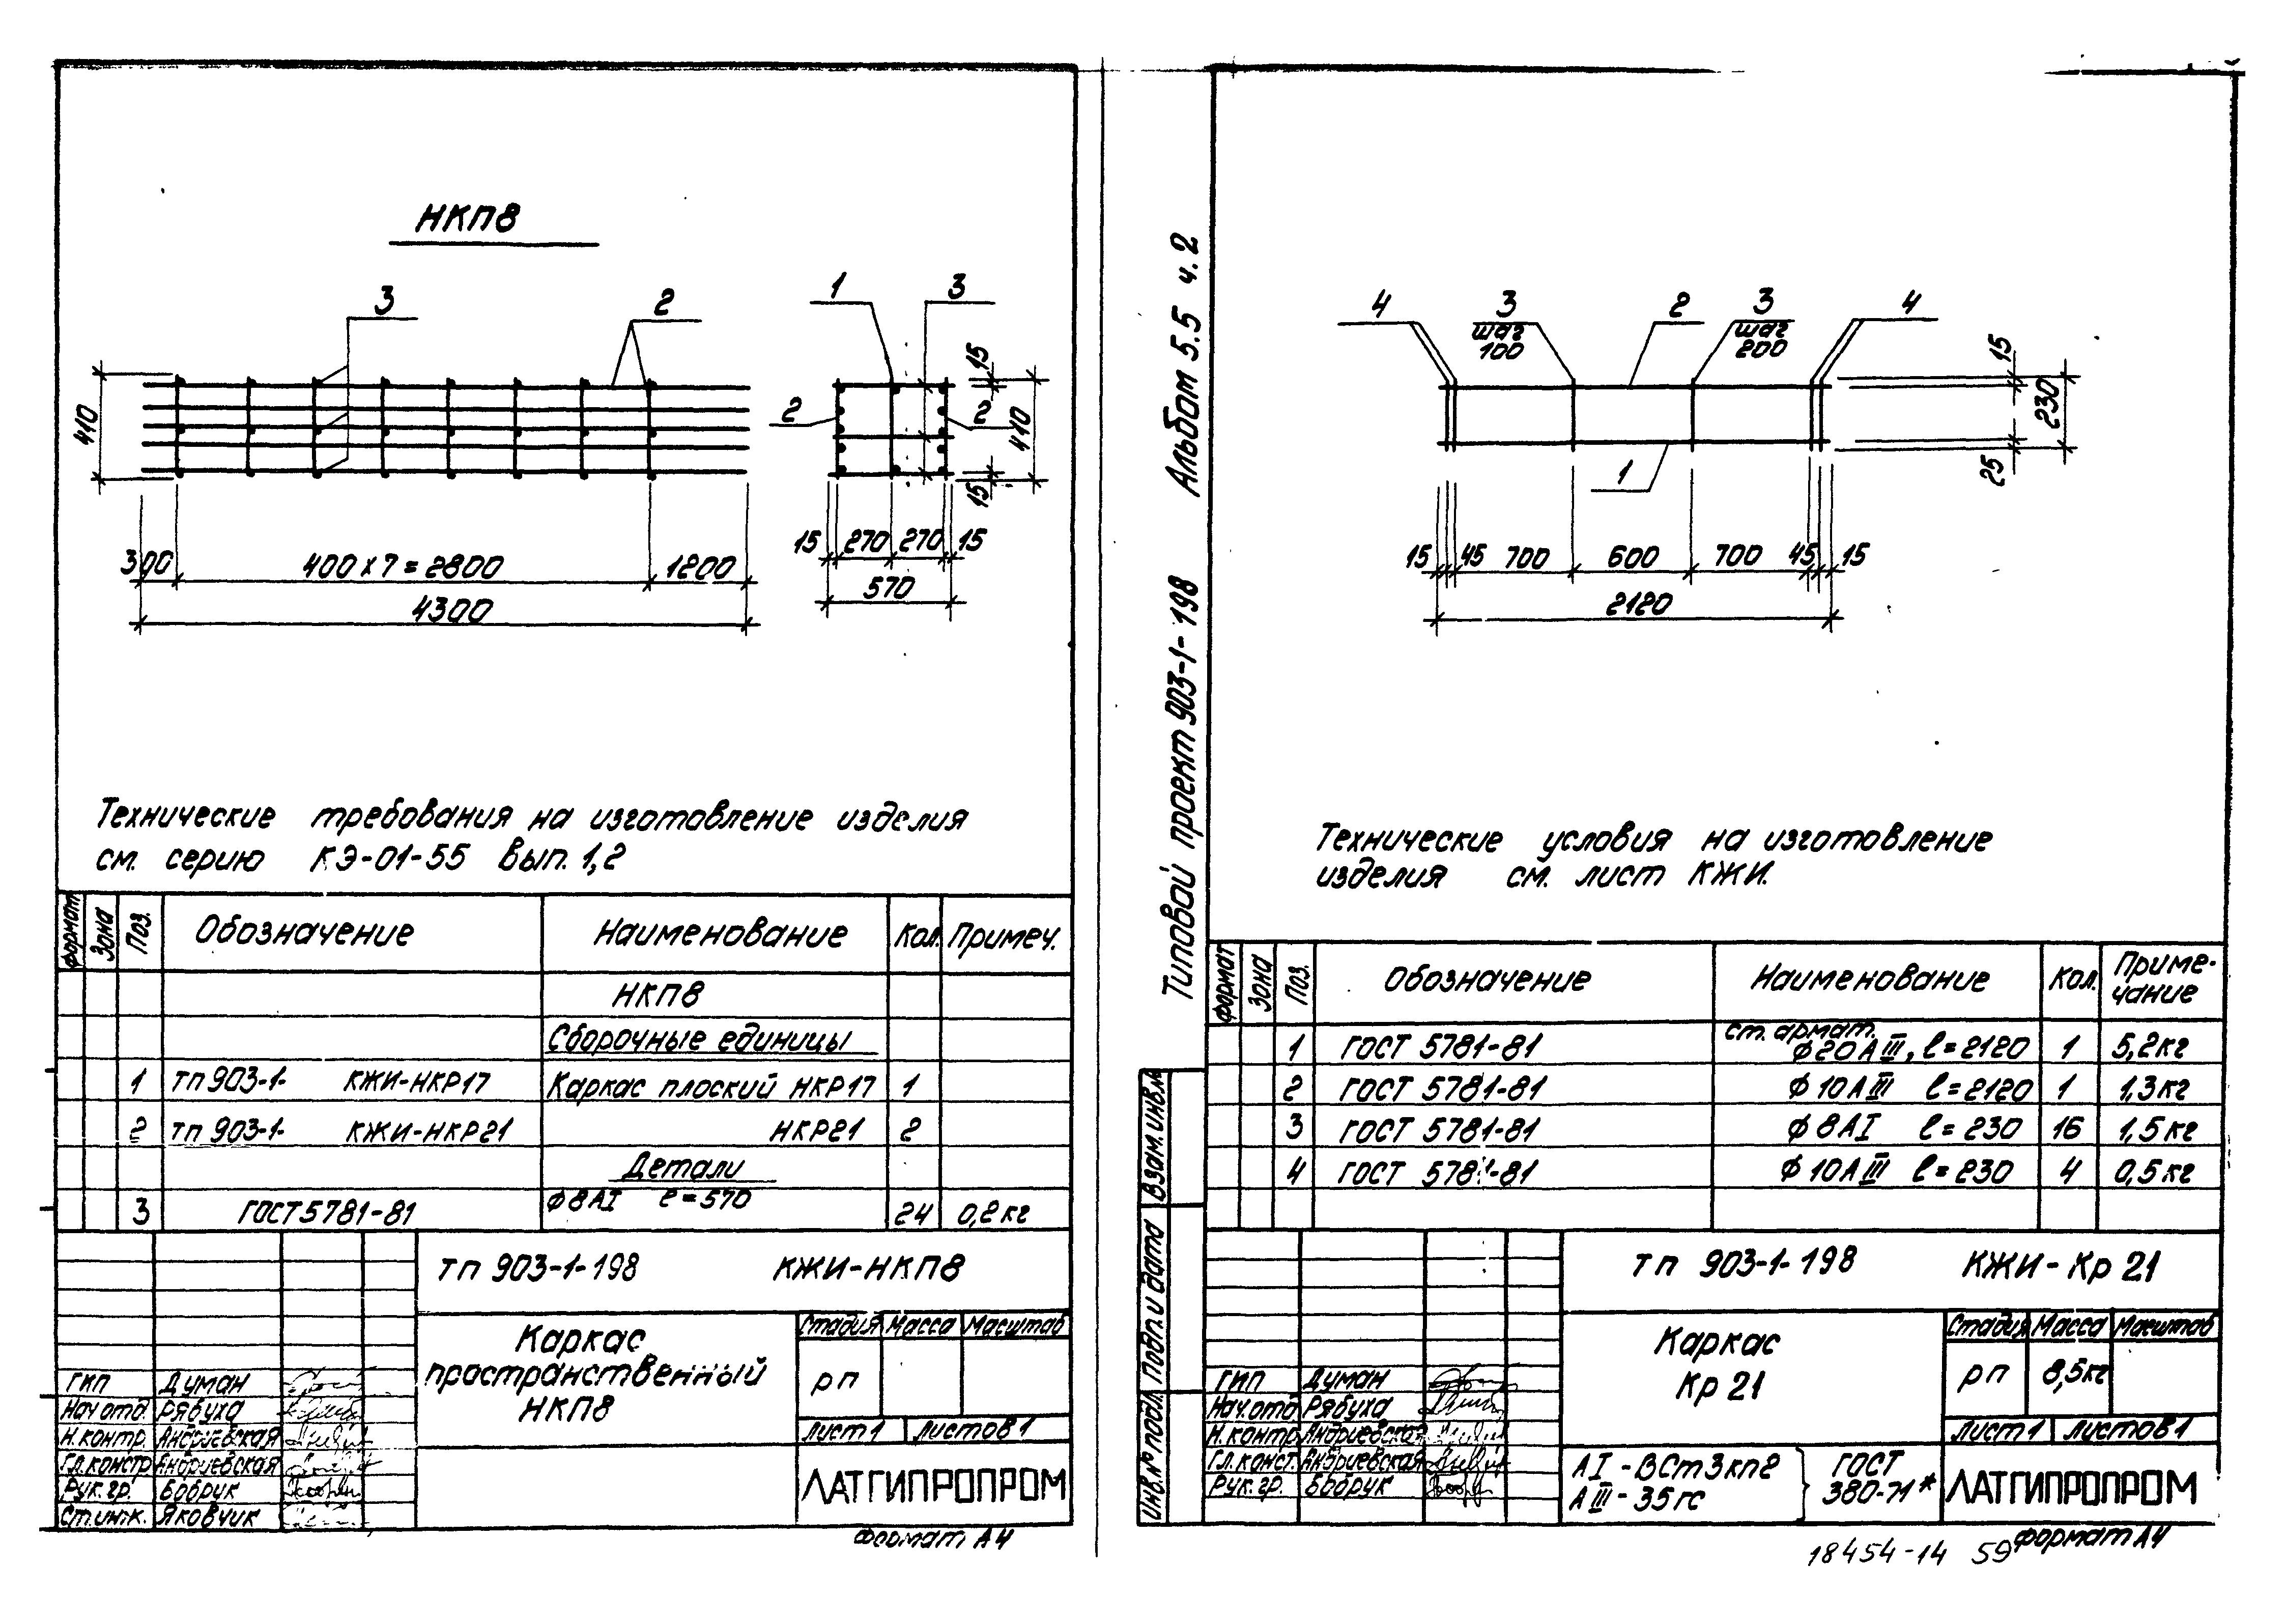 НКП8
3
2
1
3
410
2
2
15
410
15
300
400 х 7 = 2800
1200
4300
15
270
270
15
570
Технические требования на изготовление изделия
см. серию КЭ-01-55 вып. 1,2
формат Зона Поз. Обозначение Наименование Кол. Примеч.
НКП8
Сборочные единицы
1 тп 903-1- КЖИ-НКР17 Каркас плоский НКР17 1
2 тп 903-1- КЖИ-НКР21 НКР21 2
Детали
3 ГОСТ 5781-81 ф8АI ℓ=570 24 0,2кг
тп 903-1-198 КЖИ-НКП8
Каркас
пространственный
НКП8
Стадия Масса Масштаб
рп
Лист 1 Листов 1
ЛАТГИПРОПРОМ
ГИП Думан
Нач отд. Рябуха
Н.контр. Андриевская
Гл.констр Андриевская
Рук.гр. Бобрук
Ст.инж. Яковчик
формат А4
Типовой проект 903-1-198 Альбом 5.5 ч.2
Взам. инв.№
Подп. и дата
Инв.№ подл.
4
3
шаг
100
2
3
шаг
200
4
1
15
230
25
15
45
700
600
700
45
15
2120
Технические условия на изготовление
изделия см. лист КЖИ.
формат Зона Поз. Обозначение Наименование Кол. Приме-
чание
1 ГОСТ 5781-81 ст. армат. ф20АIII, ℓ=2120 1 5,2кг
2 ГОСТ 5781-81 ф10АIII ℓ=2120 1 1,3кг
3 ГОСТ 5781-81 ф8АI ℓ=230 16 1,5кг
4 ГОСТ 5781-81 ф10АIII ℓ=230 4 0,5кг
тп 903-1-198 КЖИ-Кр 21
Каркас
Кр 21
Стадия Масса Масштаб
рп 8,5кг
Лист 1 Листов 1
ГИП Думан
Нач.отд Рябуха
Н.контр Андриевская
Гл.конст. Андриевская
Рук.гр. Бобрук
АI - ВСт3кп2
АIII - 35ГС
ГОСТ
380-71*
ЛАТГИПРОПРОМ
формат А4
18454-14 59